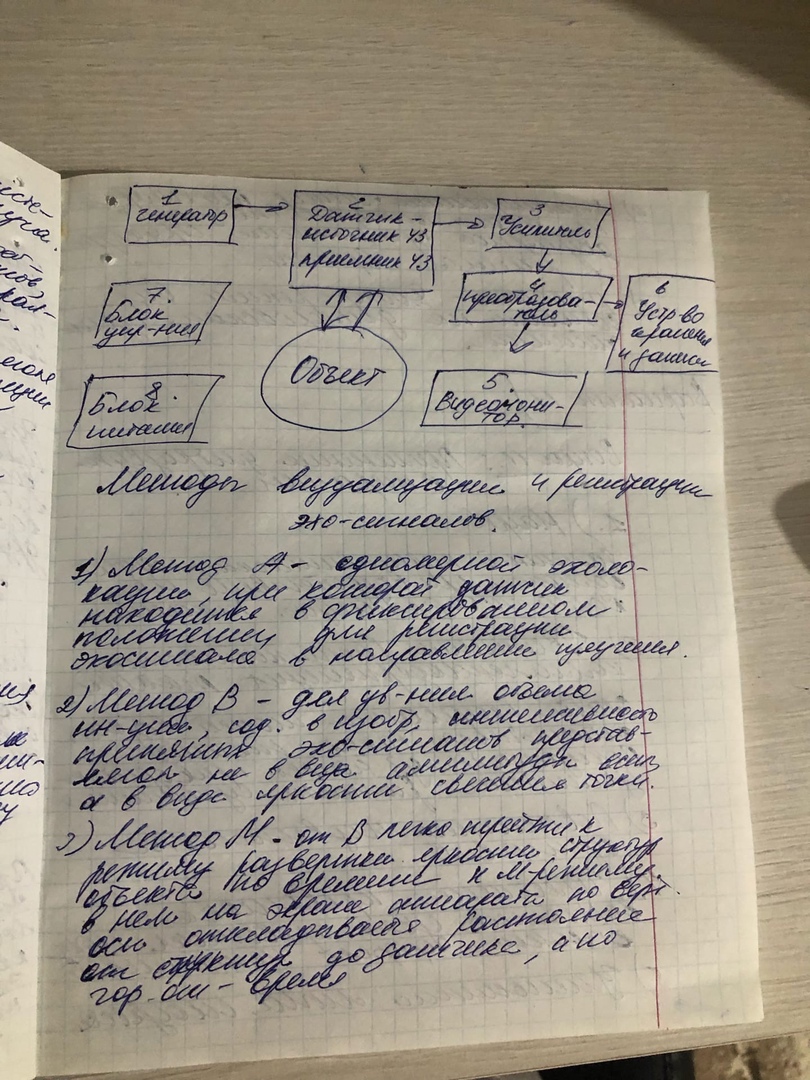 1
Генератор
2
Датчик-
источник УЗ
приемник УЗ
3
Усилитель
4
преобразова-
тель
6
Устр-во
хранения
и записи
7.
Блок
упр-ния
Объект
5.
Видеомони-
тор.
8.
Блок
питания
Методы визуализации и регистрации
эхо-сигналов.
1) Метод А - одномерной эхоло-
кации, при которой датчик
находится в фиксированном
положении для регистрации
эхосигнала в направлении излучения.
2) Метод В - для ув-ния объема
ин-ции, сод. в изобр, интенсивность
принятых эхо-сигналов представ-
лял не в виде амплитуды
а в виде яркости свечения точки.
3) Метод М - от В легко перейти к
режиму развертки яркости структур
объекта по времени к М-режиму.
в нем на экране аппарата по верт.
оси откладывается расстояние
от структур до датчика, а по
гор-оси - время